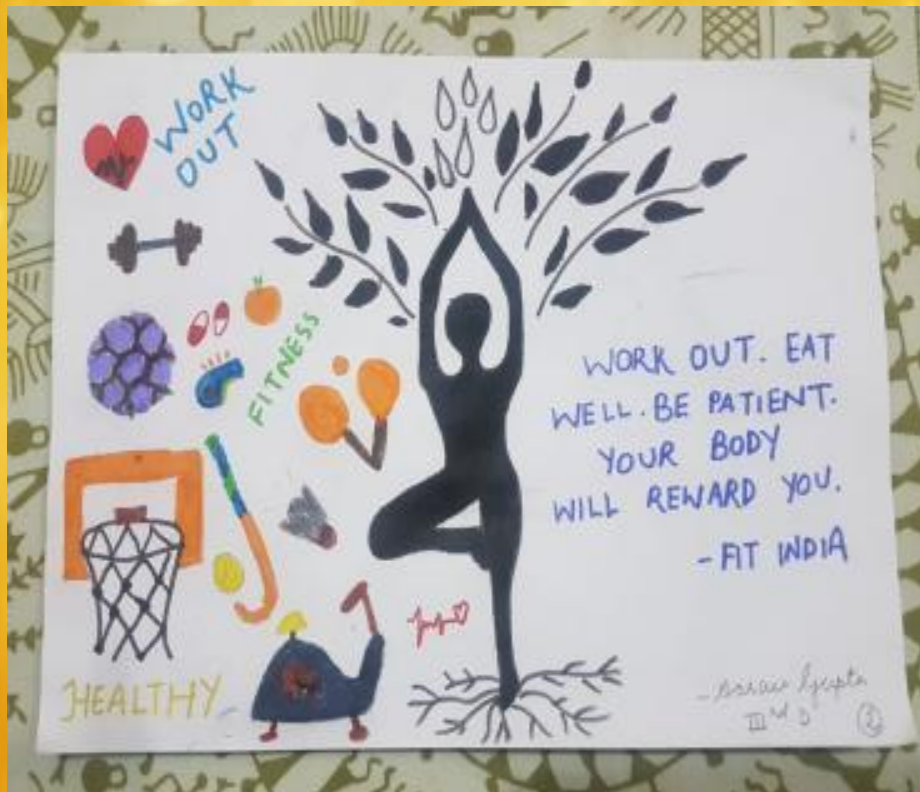 WORK
OUT
FITNESS
WORK OUT. EAT
WELL. BE PATIENT.
YOUR BODY
WILL REWARD YOU.
- FIT INDIA
HEALTHY
Gupta
III rd D
2